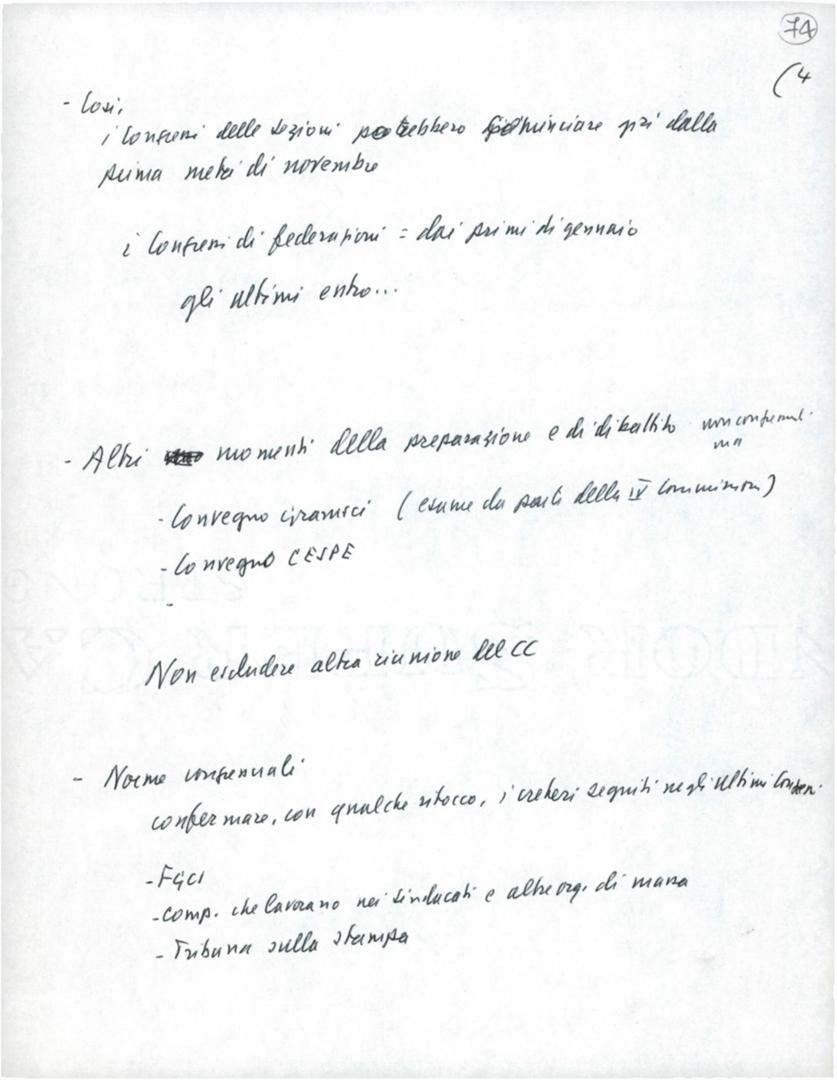 74
(4
- Così,
i Congressi delle sezioni potrebbero cominciare già dalla
prima metà di novembre
i Congressi di federazioni = dai primi di gennaio
gli ultimi entro...
- Altri momenti della preparazione e di dibattito non congressuali
ma
- Convegno Gramsci (esame da parte della IV Commissione)
- Convegno CESPE
-
Non escludere altra riunione del CC
- Norme congressuali
confermare, con qualche ritocco, i criteri seguiti negli ultimi Congressi
- FGCI
- comp. che lavorano nei sindacati e altre org. di massa
- Tribuna sulla stampa